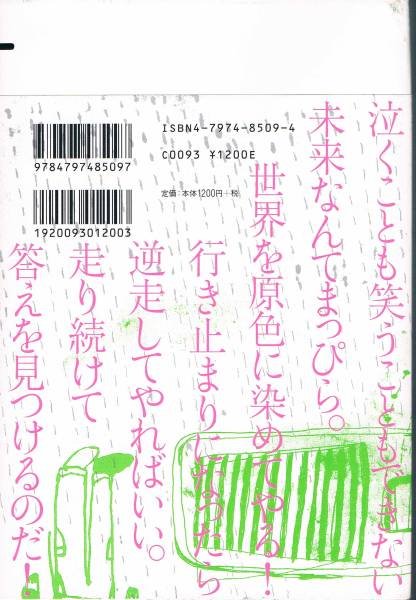 ISBN4-7974-8509-4
C0093 ¥1200E
定価:本体1200円+税
9784797485097
1920093012003
泣くことも笑うこともできない
未来なんてまっぴら。
世界を原色に染めてやる!
行き止まりになったら
逆走してやればいい。
走り続けて
答えを見つけるのだ!